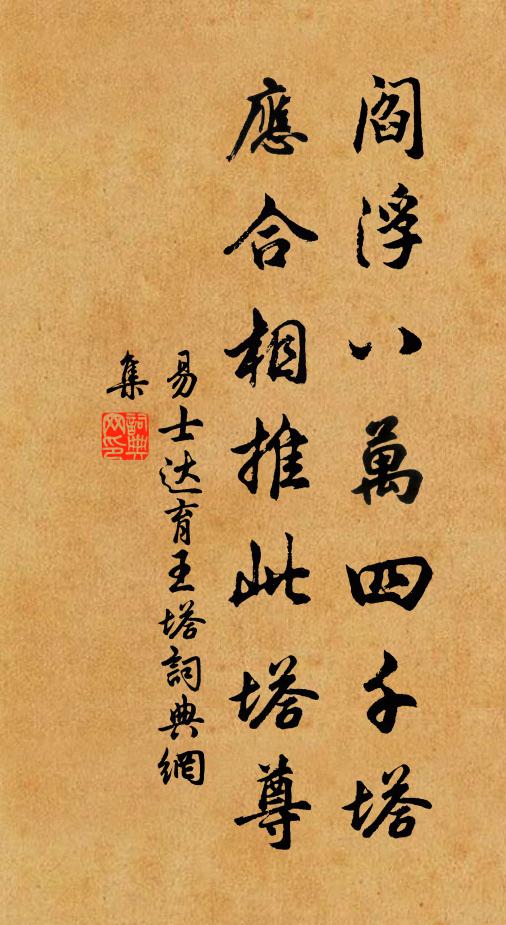 閻浮八萬四千塔
應合相推此塔尊
易士达育王塔詞典網
集
詞典
网印